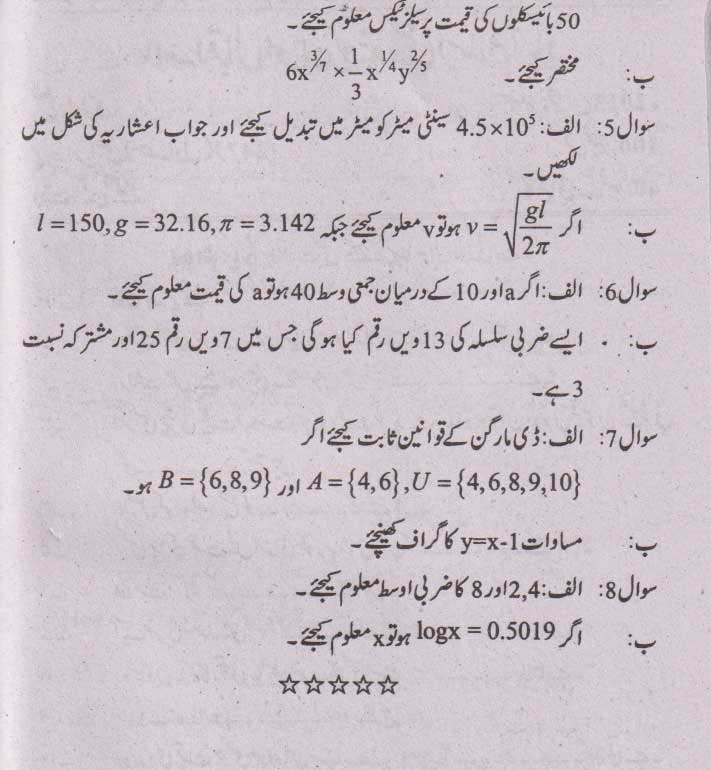 50 بائیسکلوں کی قیمت پر سیلز ٹیکس معلوم کیجئے۔
ب: مختصر کیجئے۔ 6x^{3/7} × \frac{1}{3}x^{1/4}y^{2/5}
سوال5: الف: 4.5×10⁵ سینٹی میٹر کو میٹر میں تبدیل کیجئے اور جواب اعشاریہ کی شکل میں
لکھیں۔
ب: اگر v = \sqrt{\frac{gl}{2π}} ہو تو v معلوم کیجئے جبکہ l = 150, g = 32.16, π = 3.142
سوال6: الف: اگر a اور 10 کے درمیان جمعی وسط 40 ہو تو a کی قیمت معلوم کیجئے۔
ب: ایسے ضربی سلسلہ کی 13 ویں رقم کیا ہو گی جس میں 7 ویں رقم 25 اور مشترکہ نسبت
3 ہے۔
سوال7: الف: ڈی مارگن کے قوانین ثابت کیجئے اگر
A = {4,6}, U = {4,6,8,9,10} اور B = {6,8,9} ہو۔
ب: مساوات y=x-1 کا گراف کھینچئے۔
سوال8: الف: 2,4 اور 8 کا ضربی اوسط معلوم کیجئے۔
ب: اگر logx = 0.5019 ہو تو x معلوم کیجئے۔
☆☆☆☆☆